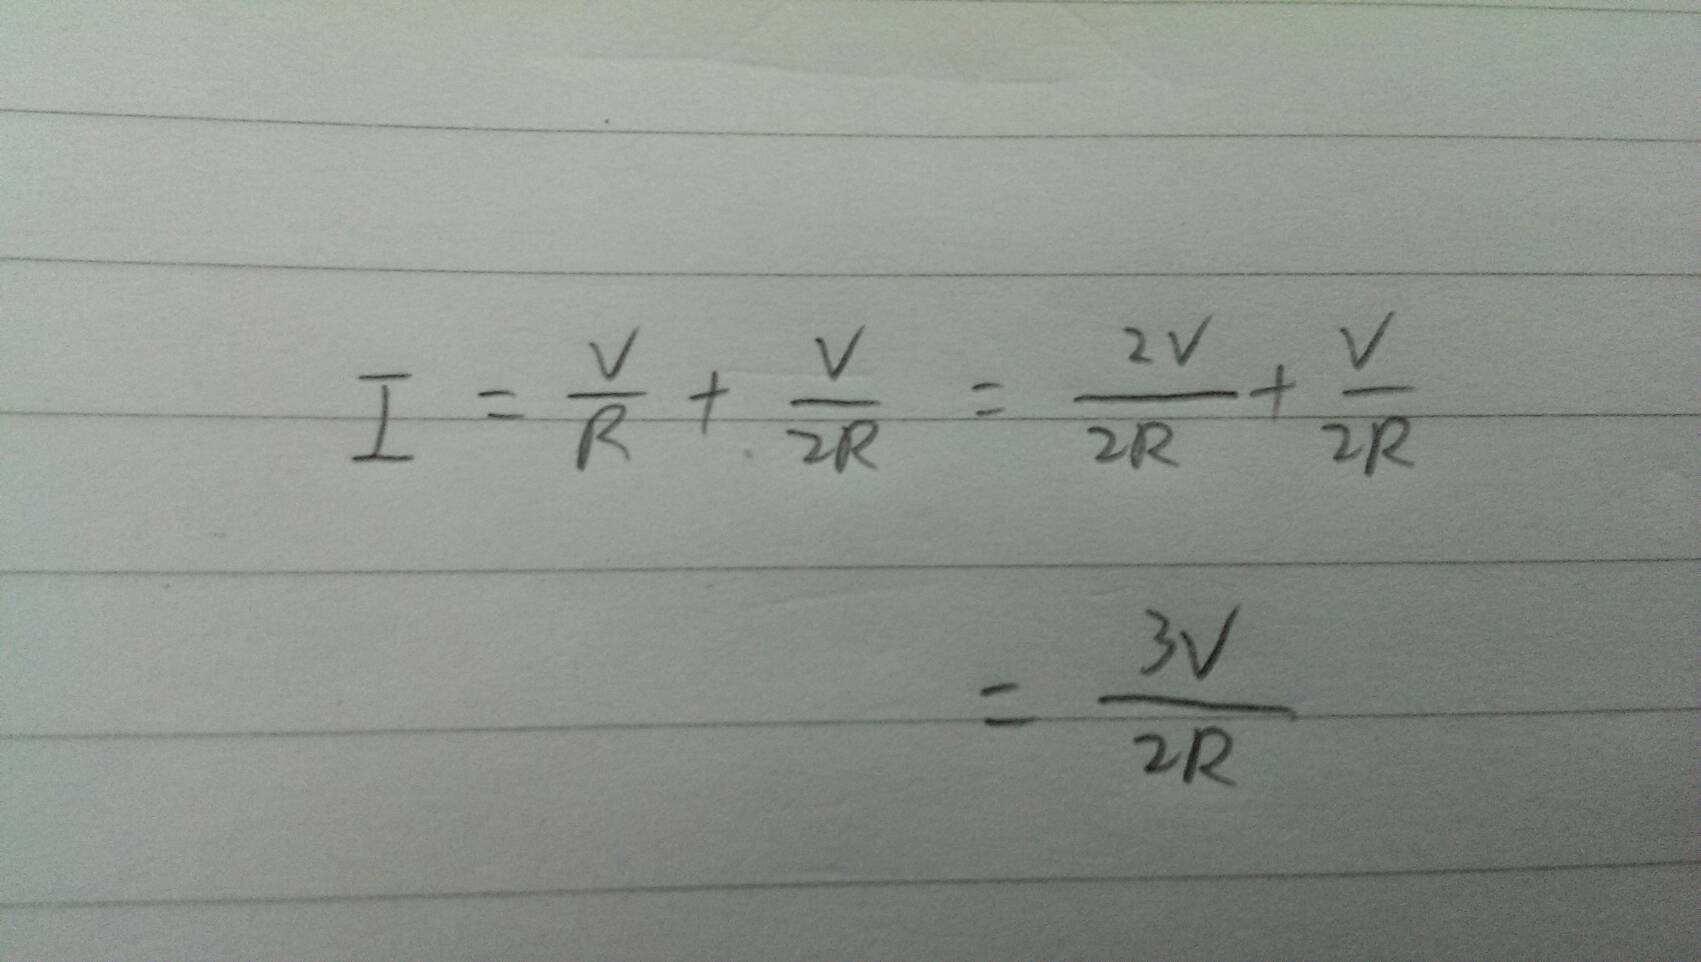 I = V/R + V/2R = 2V/2R + V/2R
= 3V/2R